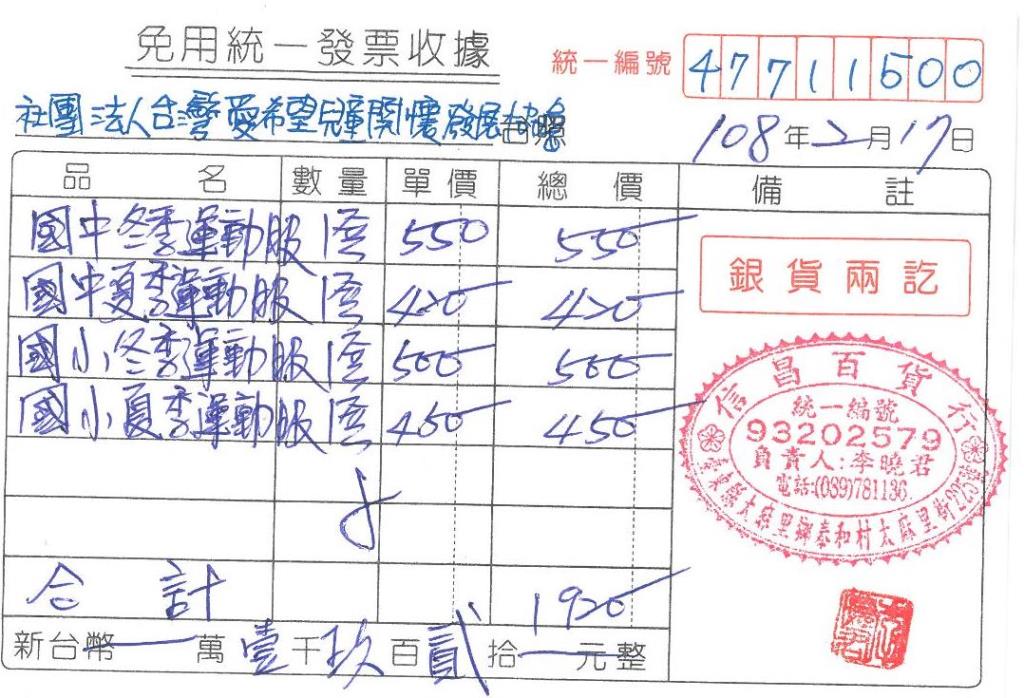 免用統一發票收據
統一編號 47711500
社團法人台灣愛希望兒童關懷發展協會 台照
108年2月17日
品名 數量 單價 總價 備註
國中冬季運動服 1套 550 550
國中夏季運動服 1套 420 420
國小冬季運動服 1套 500 500
國小夏季運動服 1套 450 450
合計 1920
新台幣 萬壹千玖百貳拾 元整
銀貨兩訖
信昌百貨行
統一編號
93202579
負責人:李曉君
電話:(089)781136
臺東縣太麻里鄉泰和村太麻里街